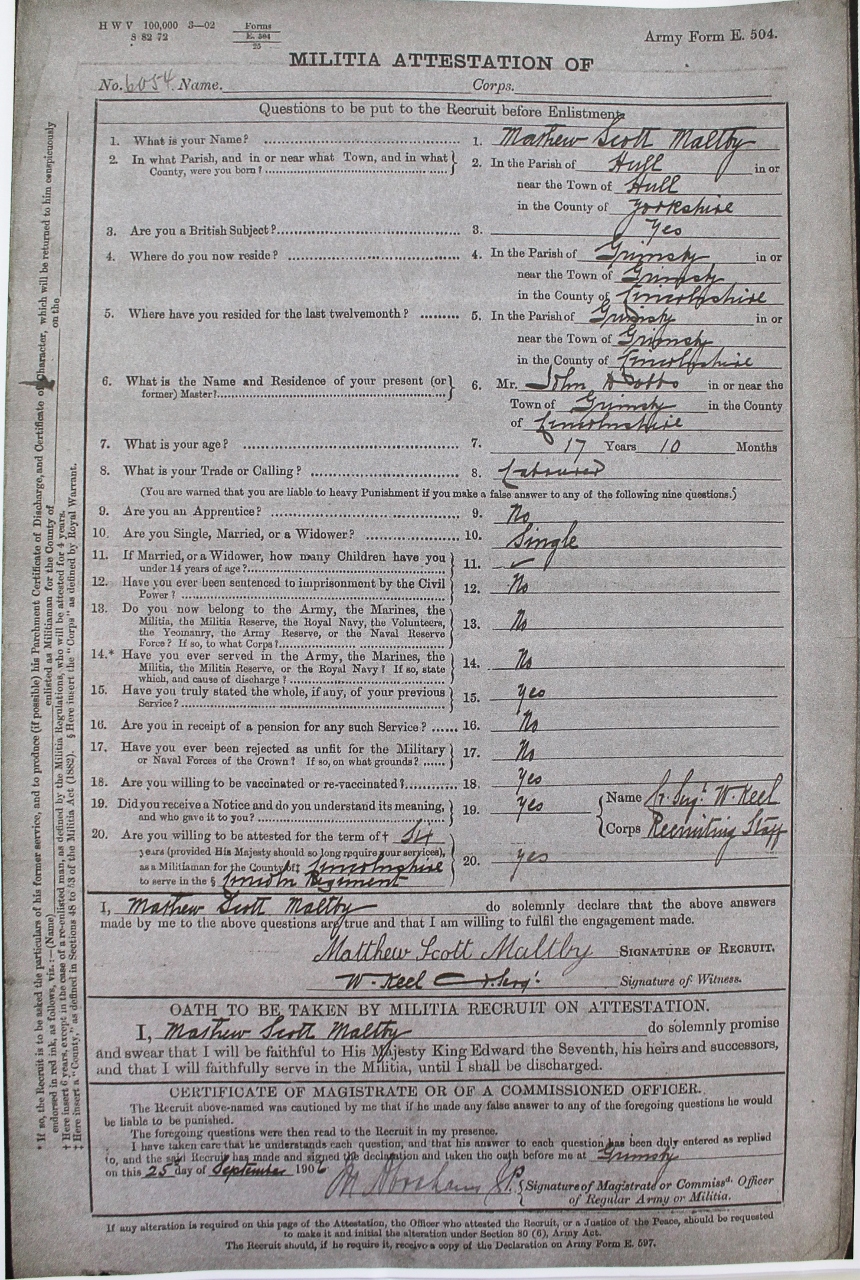 H W V 100,000 3—02 Forms
S 82 72 E. 504
25
Army Form E. 504.
MILITIA ATTESTATION OF
No. 6054 Name. Corps.
Questions to be put to the Recruit before Enlistment.
1. What is your Name? 1. Mathew Scott Maltby
2. In what Parish, and in or near what Town, and in what County, were you born? 2. In the Parish of Hull in or
near the Town of Hull
in the County of Yorkshire
3. Are you a British Subject? 3. Yes
4. Where do you now reside? 4. In the Parish of Grimsby in or
near the Town of Grimsby
in the County of Lincolnshire
5. Where have you resided for the last twelvemonth? 5. In the Parish of Grimsby in or
near the Town of Grimsby
in the County of Lincolnshire
6. What is the Name and Residence of your present (or former) Master? 6. Mr. John in or near the
Town of Grimsby in the County
of Lincolnshire
7. What is your age? 7. 17 Years 10 Months
8. What is your Trade or Calling? 8. Labourer
(You are warned that you are liable to heavy Punishment if you make a false answer to any of the following nine questions.)
9. Are you an Apprentice? 9. No
10. Are you Single, Married, or a Widower? 10. Single
11. If Married, or a Widower, how many Children have you
under 14 years of age? 11.
12. Have you ever been sentenced to imprisonment by the Civil
Power? 12. No
13. Do you now belong to the Army, the Marines, the
Militia, the Militia Reserve, the Royal Navy, the Volunteers,
the Yeomanry, the Army Reserve, or the Naval Reserve
Force? If so, to what Corps? 13. No
14.* Have you ever served in the Army, the Marines, the
Militia, the Militia Reserve, or the Royal Navy? If so, state
which, and cause of discharge? 14. No
15. Have you truly stated the whole, if any, of your previous
Service? 15. Yes
16. Are you in receipt of a pension for any such Service? 16. No
17. Have you ever been rejected as unfit for the Military
or Naval Forces of the Crown? If so, on what grounds? 17. No
18. Are you willing to be vaccinated or re-vaccinated? 18. Yes
19. Did you receive a Notice and do you understand its meaning,
and who gave it to you? 19. Yes Name W. Keel
Corps Recruiting Staff
20. Are you willing to be attested for the term of † Six
years (provided His Majesty should so long require your services),
as a Militiaman for the County of ‡ Lincolnshire
to serve in the § Lincoln Regiment 20. yes
I, Mathew Scott Maltby do solemnly declare that the above answers
made by me to the above questions are true and that I am willing to fulfil the engagement made.
Matthew Scott Maltby SIGNATURE OF RECRUIT.
W. Keel Signature of Witness.
OATH TO BE TAKEN BY MILITIA RECRUIT ON ATTESTATION.
I, Mathew Scott Maltby do solemnly promise
and swear that I will be faithful to His Majesty King Edward the Seventh, his heirs and successors,
and that I will faithfully serve in the Militia, until I shall be discharged.
CERTIFICATE OF MAGISTRATE OR OF A COMMISSIONED OFFICER.
The Recruit above-named was cautioned by me that if he made any false answer to any of the foregoing questions he would
be liable to be punished.
The foregoing questions were then read to the Recruit in my presence.
I have taken care that he understands each question, and that his answer to each question has been duly entered as replied
to, and the said Recruit has made and signed the declaration and taken the oath before me at Grimsby
on this 25 day of September 190
Abraham J.P. Signature of Magistrate or Commissd. Officer
of Regular Army or Militia.
If any alteration is required on this page of the Attestation, the Officer who attested the Recruit, or a Justice of the Peace, should be requested
to make it and initial the alteration under Section 80 (6), Army Act.
The Recruit should, if he require it, receive a copy of the Declaration on Army Form E. 597.
* If so, the Recruit is to be asked the particulars of his former service, and to produce (if possible) his Parchment Certificate of Discharge, and Certificate of Character, which will be returned to him conspicuously
endorsed in red ink, as follows, viz.:—(Name) enlisted as Militiaman for the County of on the
† Here insert 6 years, except in the case of a re-enlisted man, as defined by the Militia Regulations, who will be attested for 4 years.
‡ Here insert a "County," as defined in Sections 48 to 53 of the Militia Act (1882). § Here insert the "Corps" as defined by Royal Warrant.